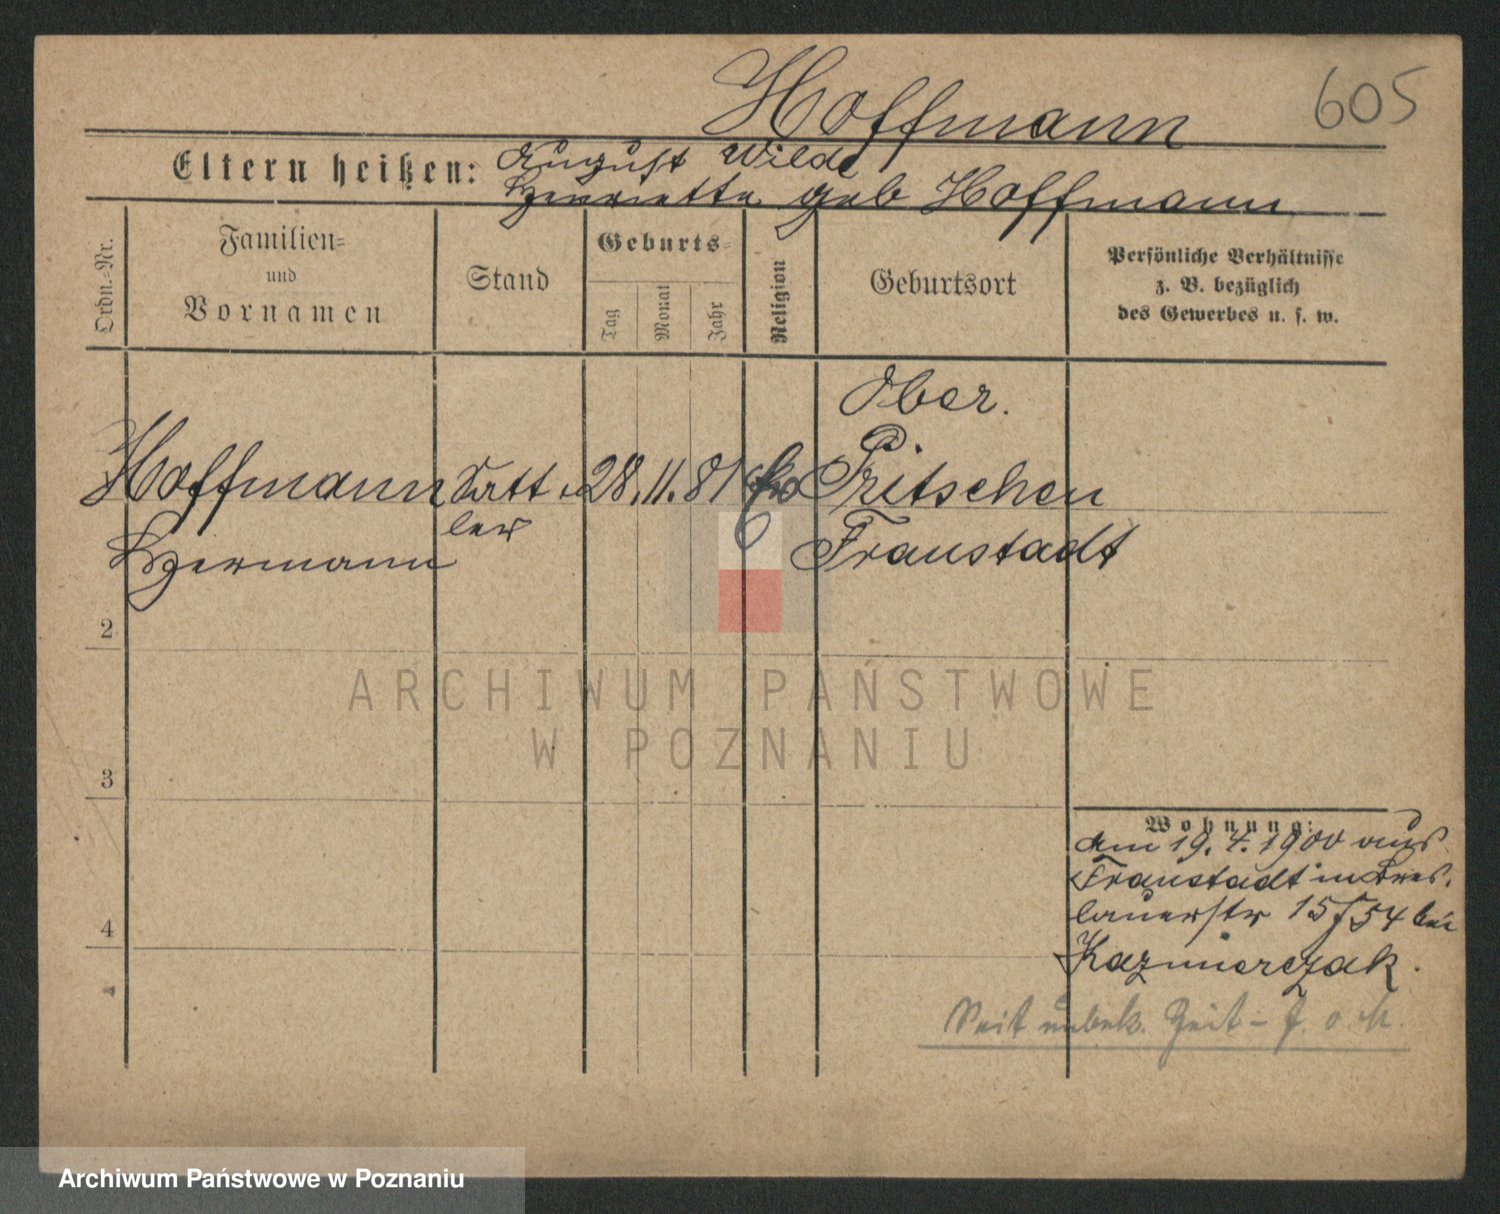 605
Hoffmann
Eltern heißen: August Wilde
Henriette geb Hoffmann
Ordn.-Nr.
Familien- und Vornamen
Stand
Geburts-
Tag
Monat
Jahr
Religion
Geburtsort
Persönliche Verhältnisse
z. B. bezüglich
des Gewerbes u. s. w.
Ober.
Hoffmann Satt 28. 11. 81 Pritschen
ler
Hermann Fraustadt
2
3
4
Wohnung:
am 19. 4. 1900 aus
Fraustadt in Bres-
lauerstr 15/54 bei
Kazmierczak.
Seit unbek. Zeit -
ARCHIWUM PAŃSTWOWE
W POZNANIU
Archiwum Państwowe w Poznaniu